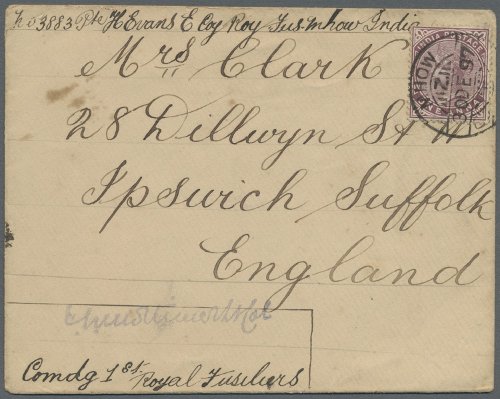 No 3883 Pte H Evans E Coy Roy Fus. Mhow India
Mrs Clark
28 Dillwyn St W
Ipswich Suffolk
England
Comdg 1st Royal Fusiliers
INDIA POSTAGE
MHOW
30 DE 97